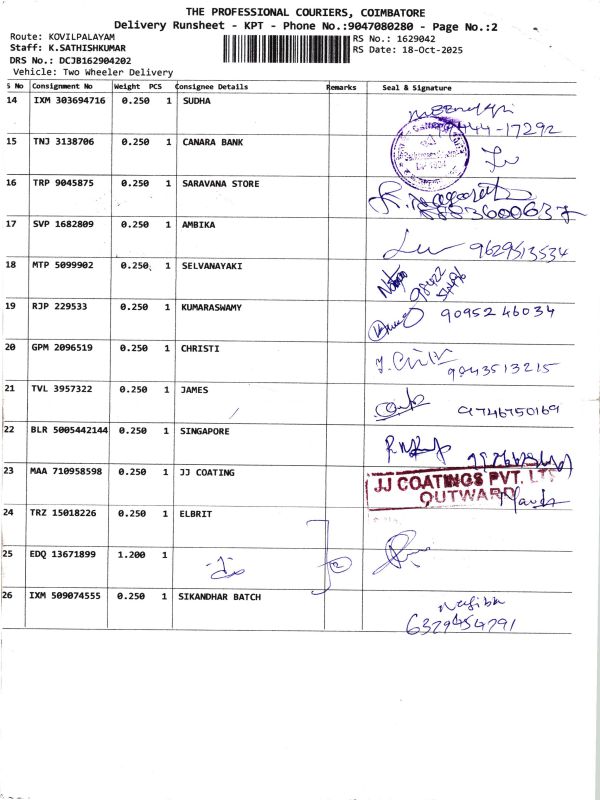 THE PROFESSIONAL COURIERS, COIMBATORE
Delivery Runsheet - KPT - Phone No.:9047080280 - Page No.:2
Route: KOVILPALAYAM
RS No.: 1629042
Staff: K.SATHISHKUMAR
RS Date: 18-Oct-2025
DRS No.: DCJB162904202
Vehicle: Two Wheeler Delivery
S No Consignment No Weight PCS Consignee Details Remarks Seal & Signature
14 IXM 303694716 0.250 1 SUDHA
444-17292
15 TNJ 3138706 0.250 1 CANARA BANK
16 TRP 9045875 0.250 1 SARAVANA STORE
17 SVP 1682809 0.250 1 AMBIKA
9629513534
18 MTP 5099902 0.250 1 SELVANAYAKI
19 RJP 229533 0.250 1 KUMARASWAMY
90952 46034
20 GPM 2096519 0.250 1 CHRISTI
9843513215
21 TVL 3957322 0.250 1 JAMES
9746750169
22 BLR 5005442144 0.250 1 SINGAPORE
23 MAA 710958598 0.250 1 JJ COATING
JJ COATINGS PVT. LTD
OUTWARD
24 TRZ 15018226 0.250 1 ELBRIT
25 EDQ 13671899 1.200 1
26 IXM 509074555 0.250 1 SIKANDHAR BATCH
6329454791